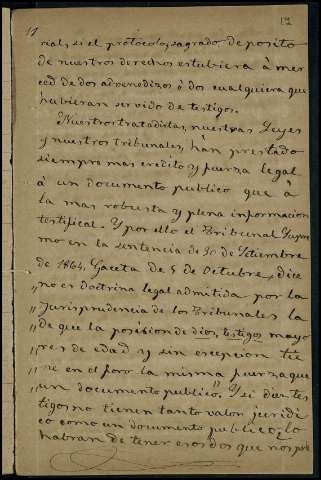 17 12
rial, si el protocolo, sagrado deposito
de nuestros derechos estubiera à mer
ced de dos advenedizos ó dos cualquiera que
hubieran servido de testigos.
Nuestros tratadistas, nuestras Leyes
y nuestros tribunales, han prestado
siempre mas credito y fuerza legal
à un documento publico que à
la mas robusta y plena informacion
testifical. Y por ello el Tribunal Supre
mo en la sentencia de 30 de Setiembre
de 1864. Gaceta de 5 de Octubre, dice
„no es doctrina legal admitida por la
„Jurisprudencia de los Tribunales la
„de que la posision de dios, testigos mayo
„res de edad y sin escepcion tie
„ne en el foro la misma fuerza que
„un documento publico". Y si diez tes
tigos no tienen tanto valor juridi
co como un documento publico ¿lo
habran de tener esos dos que nos